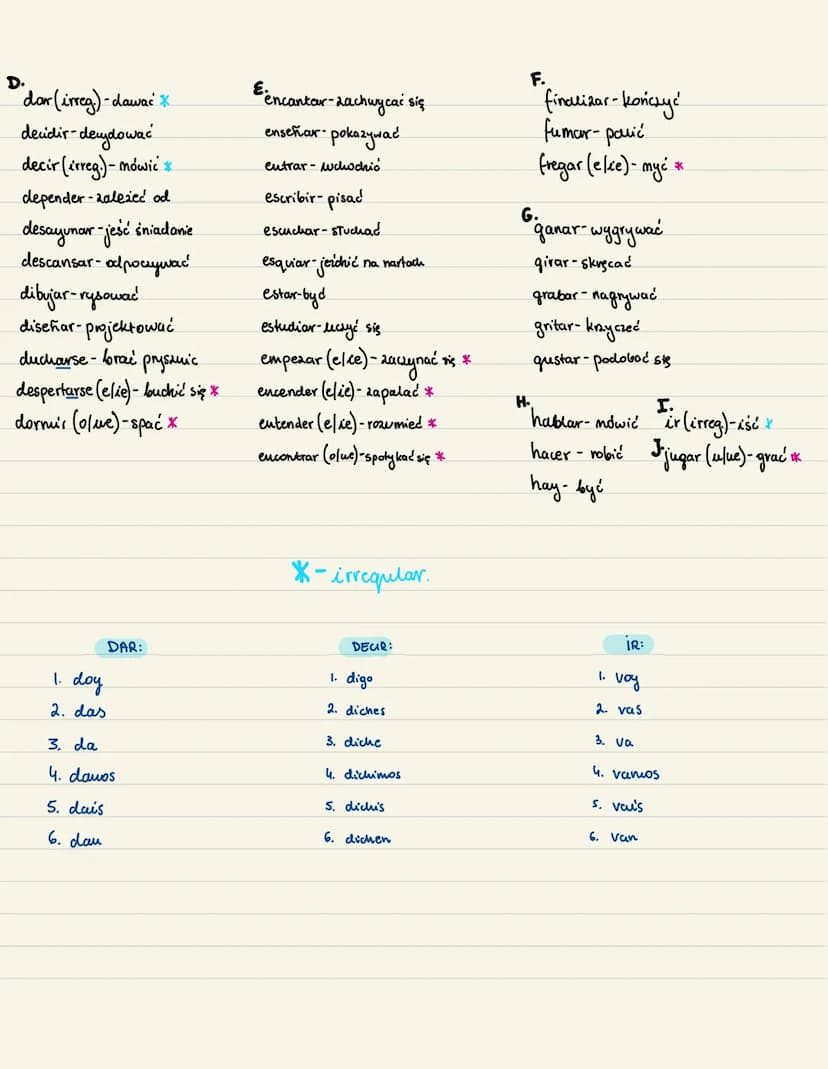 D.
dar (irreg.) - dawać *
decidir - decydować
decir (irreg.) - mówić *
depender - zależeć od
desayunar - jeść śniadanie
descansar - odpoczywać
dibujar - rysować
diseñar - projektować
ducharse - brać prysznic
despertarse (e/ie) - budzić się *
dormir (o/ue) - spać *
E.
encantar - zachwycać się
enseñar - pokazywać
entrar - wchodzić
escribir - pisać
escuchar - słuchać
esquiar - jeździć na nartach
estar - być
estudiar - uczyć się
empezar (e/ie) - zaczynać się *
encender (e/ie) - zapalać *
entender (e/ie) - rozumieć *
encontrar (o/ue) - spotykać się *
F.
finalizar - kończyć
fumar - palić
fregar (e/ie) - myć *
G.
ganar - wygrywać
girar - skręcać
grabar - nagrywać
gritar - krzyczeć
gustar - podobać się
H.
hablar - mówić
hacer - robić
hay - być
I.
ir (irreg.) - iść *
J.
jugar (u/ue) - grać *
* - irregular.
DAR:
1. doy
2. das
3. da
4. damos
5. dais
6. dan
DECIR:
1. digo
2. diches
3. diche
4. dichimos
5. dichis
6. dichen
IR:
1. voy
2. vas
3. va
4. vamos
5. vais
6. van